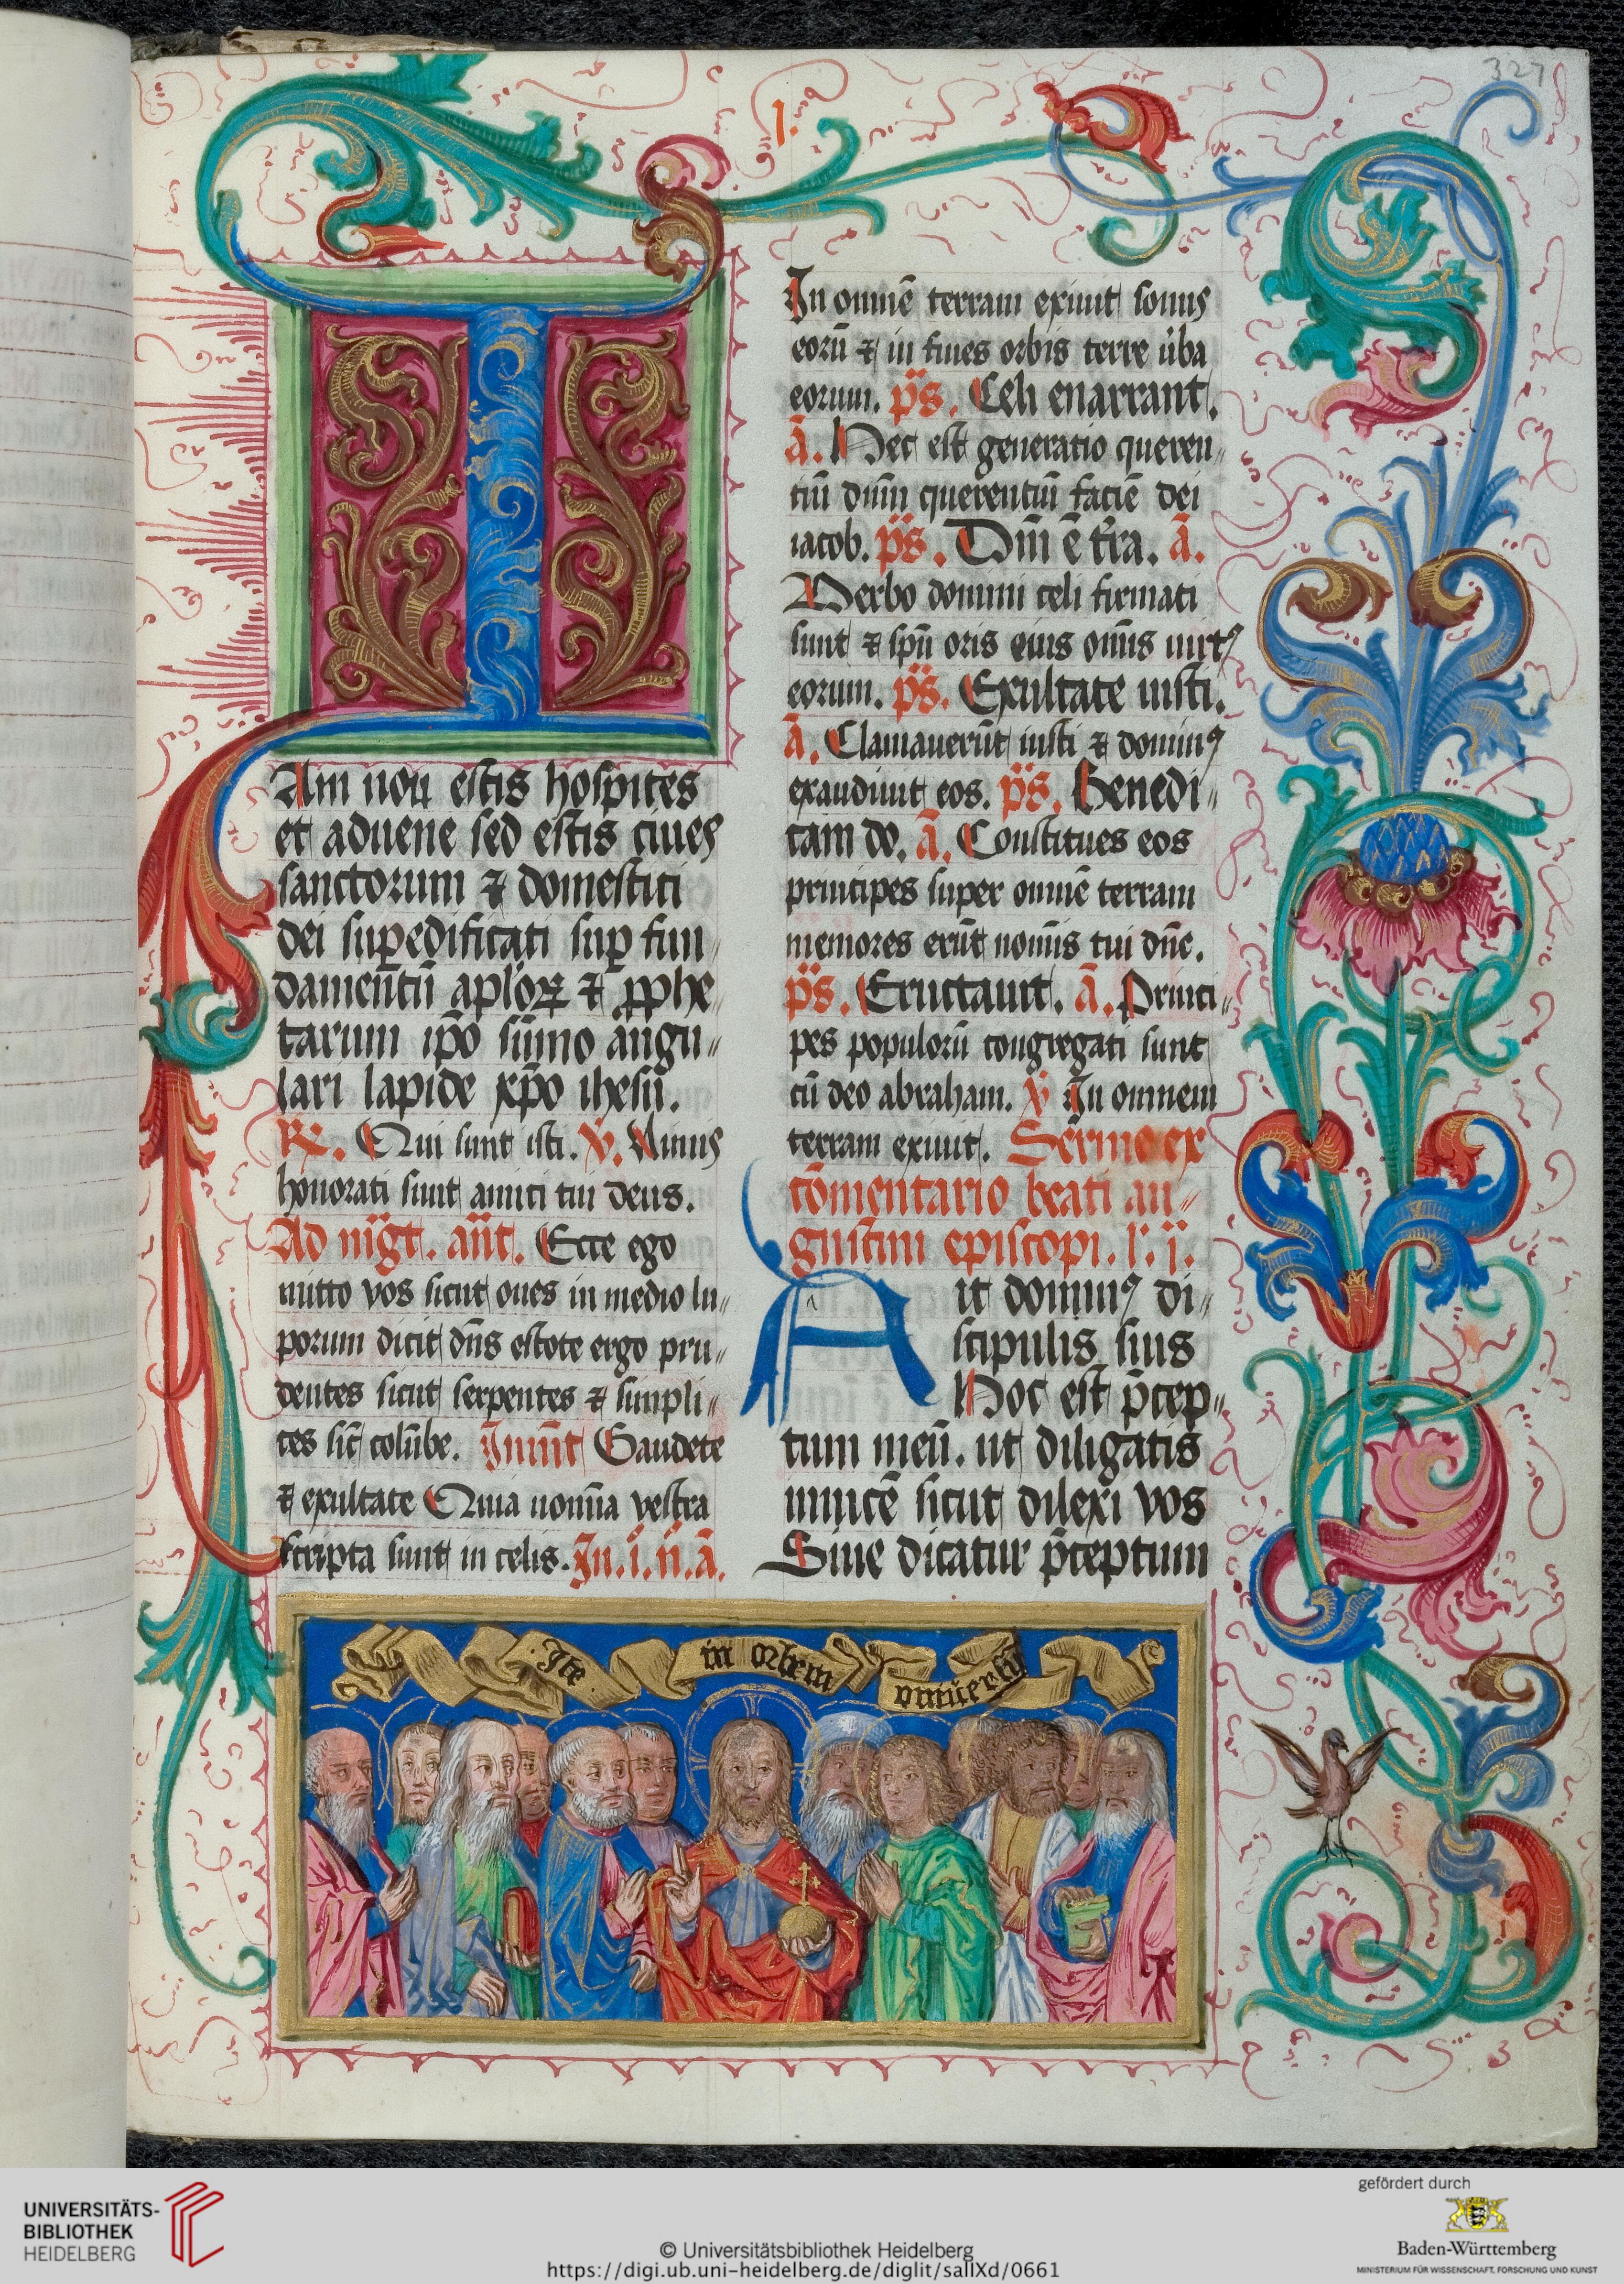 327
1.
I
Am non estis hospites
et aduene sed estis ciues
sanctorum ⁊ domestici
dei sup̲edificati sup̲ fun„
damentū apl'oꝝ ⁊ ꝓphe„
tarum ip̄o sūmo angu„
lari lapide xp̄o ihesū.
℟. Qui sunt isti. ℣. Nimis
honorati sunt amici tui deus.
Ad mḡt. an̄t. Ecce ego
mitto vos sicut oues in medio lu„
porum dicit dn̄s estote ergo pru„
dentes sicut serpentes ⁊ simpli„
ces sic̄ colūbe. Inuit̄ Gaudete
⁊ exultate Quia nomīa vestra
scripta sunt in celis. In. i. n̄. ā.
In omnē terram exiuit sonus
eorū ⁊ in fines orbis terre ūba
eorum. ps̄. Celi enarrant.
ā. Hec est generatio queren„
tiū dn̄m querentiū faciē dei
iacob. ps̄. Dn̄i ē t'ra. ā.
Verbo domini celi firmati
sunt ⁊ spū oris eius om̄is uirtꝰ
eorum. ps̄. Exultate iusti.
ā. Clamauerūt iusti ⁊ dominꝰ
exaudiuit eos. ps̄. Benedi„
cam do. ā. Constitues eos
principes super omnē terram
memores erūt nomīs tui dn̄e.
ps̄. Eructauit. ā. Princi„
pes populorū congregati sunt
cū deo abraham. ℣ In omnem
terram exiuit. Sermo ex
cōmentario beati au„
gustini episcopi. l'. j̇.
Ait dominꝰ di„
scipulis suis
Hoc est p̄cep„
tum meū. ut diligatis
inuicē sicut dilexi vos
Siue dicatur p̄ceptum
Ite in orbem vniuersū
UNIVERSITÄTS-
BIBLIOTHEK
HEIDELBERG
© Universitätsbibliothek Heidelberg
https://digi.ub.uni-heidelberg.de/diglit/salIXd/0661
gefördert durch
Baden-Württemberg
MINISTERIUM FÜR WISSENSCHAFT, FORSCHUNG UND KUNST